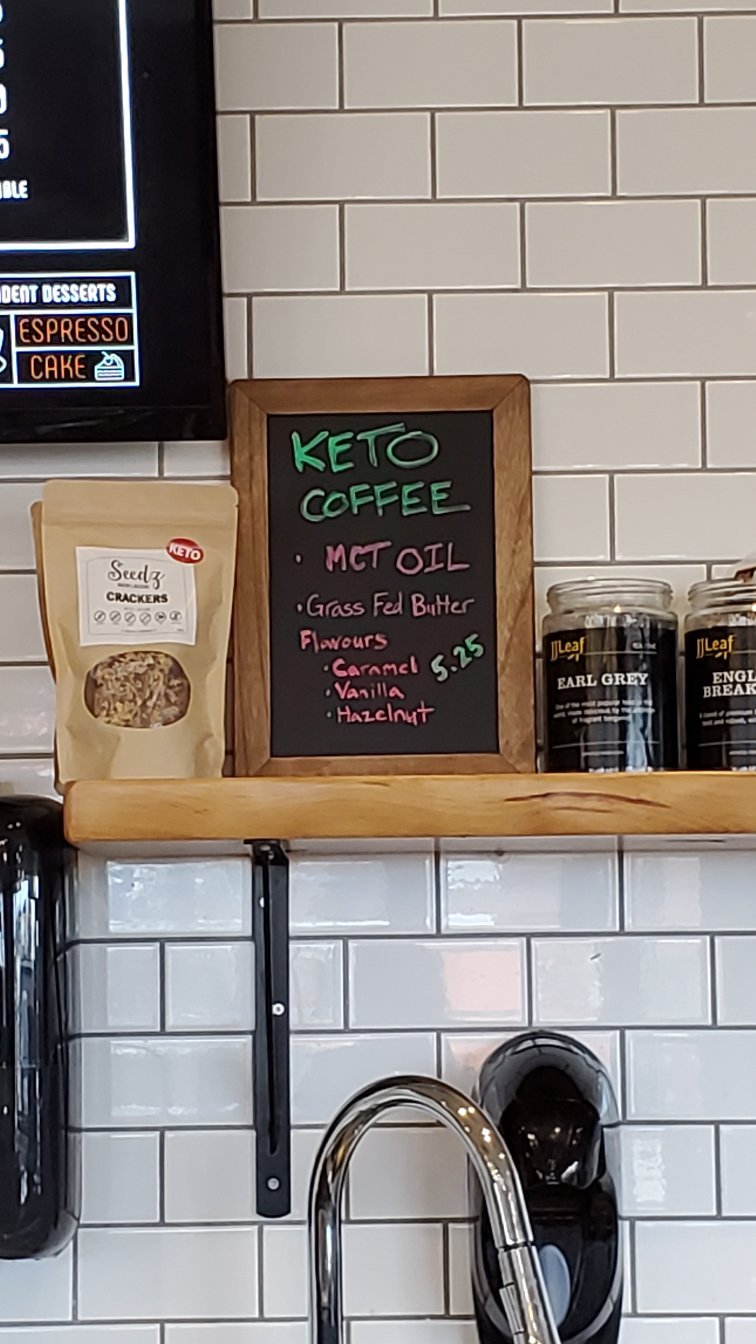 5
BLE
DENT DESSERTS
ESPRESSO
CAKE
KETO
COFFEE
· MCT OIL
· Grass Fed Butter
Flavours
· Caramel 5.25
· Vanilla
· Hazelnut
KETO
Seedz
CRACKERS
JJLeaf
EARL GREY
JJLeaf
ENGL
BREAK